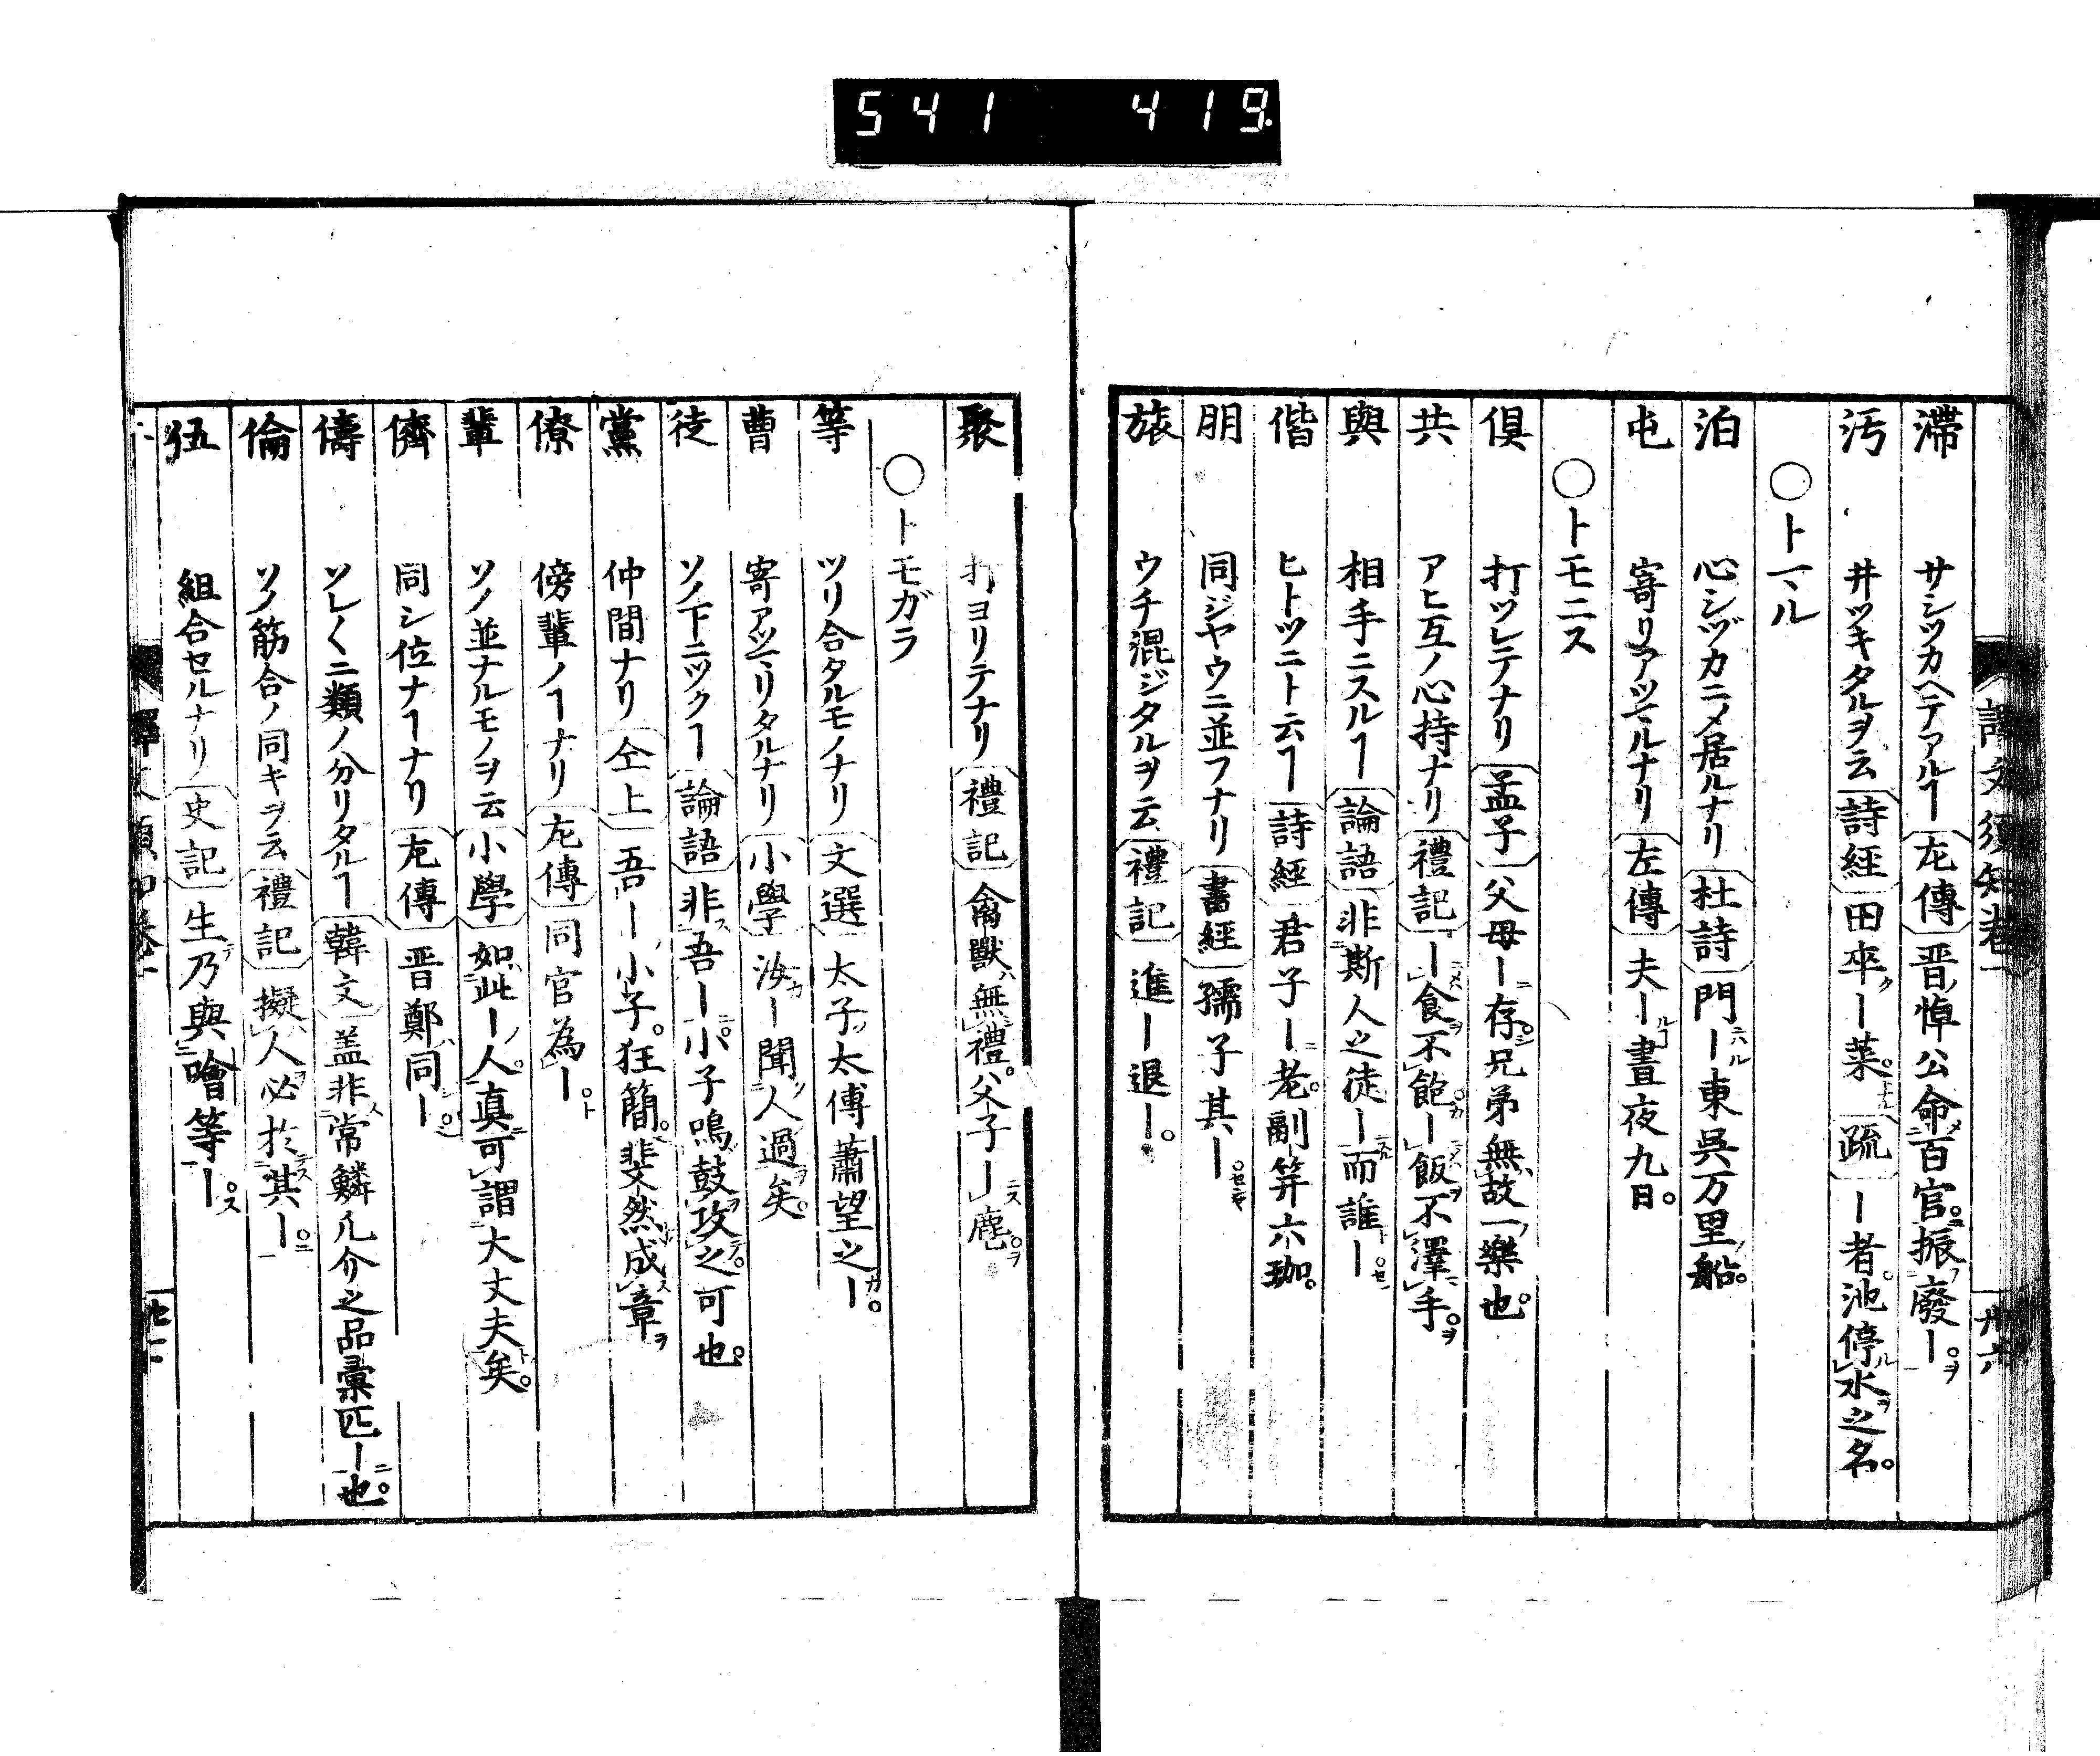 541 419.
譯文須知卷一
卅六
滯 サシツカヘテアルヿ 左傳 晋悼公命百官振廢ー
汚 井ツキタルヲ云 詩經 田卒ー萊 疏 ー者池停水之名
○トマル
泊 心シヅカニメ居ルナリ 杜詩 門ー東吳万里船
屯 寄リアツマルナリ 左傳 夫ー晝夜九日
○トモニス
俱 打ツレテナリ 孟子 父母ー存兄弟無故一樂也
共 アヒ互ノ心持ナリ 禮記 ー食不飽ー飯不澤手
與 相手ニスルヿ 論語 非斯人之徒ー而誰ー
偕 ヒトツニト云ヿ 詩經 君子ー老副笄六珈
朋 同ジヤウニ並フナリ 書經 孺子其ー
旅 ウチ混ジタルヲ云 禮記 進ー退ー
聚 打ヨリテナリ 禮記 禽獸無禮父子ー麀
○トモガラ
等 ツリ合タルモノナリ 文選 太子太傅蕭望之ー
曹 寄アツマリタルナリ 小學 汝ー聞人過矣
徒 ソノ下ニツクヿ 論語 非吾ー小子鳴鼓攻之可也
黨 仲間ナリ 仝上 吾ー小子狂簡斐然成章
僚 傍輩ノヿナリ 左傳 同官為ー
輩 ソノ並ナルモノヲ云 小學 如此ー人真可謂大丈夫矣
儕 同シ位ナヿナリ 左傳 晋鄭同ー
儔 ソレ〱ニ類ノ分リタルヿ 韓文 盖非常鱗凡介之品彙匹ー也
倫 ソノ筋合ノ同キヲ云 禮記 擬人必於其ー
伍 組合セルナリ 史記 生乃與噲等ー